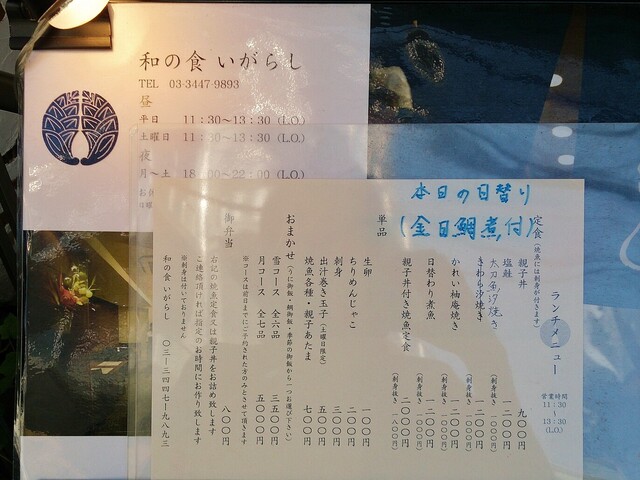 和の食 いがらし
TEL 03-3447-9893
昼
平日 11：30～13：30 (L.O.)
土曜日 11：30～13：30 (L.O.)
夜
月～土 18：00～22：00 (L.O.)
本日の日替り
(金目鯛煮付)
ランチメニュー
営業時間
11：30
～
13：30
(L.O.)
定食（焼魚には刺身が付きます）
親子丼 九〇〇円
塩鮭 一二〇〇円
（刺身抜き 一〇〇〇円）
太刀魚汐焼き 一二〇〇円
きわら汐焼き 一二〇〇円
（刺身抜き 一〇〇〇円）
かれい柚庵焼き 一二〇〇円
（刺身抜き 一〇〇〇円）
日替わり煮魚 一二〇〇円
（刺身抜き 一〇〇〇円）
親子丼付き焼魚定食 二〇〇〇円
（刺身抜き 一八〇〇円）
単品
生卵 一〇〇円
ちりめんじゃこ 二〇〇円
刺身 三〇〇円
出汁巻き玉子（土曜日限定） 五〇〇円
焼魚各種・親子あたま 七〇〇円
おまかせ（うに御飯・鯛御飯・季節の御飯から一つお選び下さい）
雪コース 全六品 三五〇〇円
月コース 全七品 五〇〇〇円
※コースは前日までにご予約された方のみとさせて頂きます
御弁当 八〇〇円
右記の焼魚定食又は親子丼をお詰め致します
ご連絡頂ければ指定のお時間にお作り致します
※刺身は付いておりません
和の食 いがらし 〇三－三四四七－九八九三